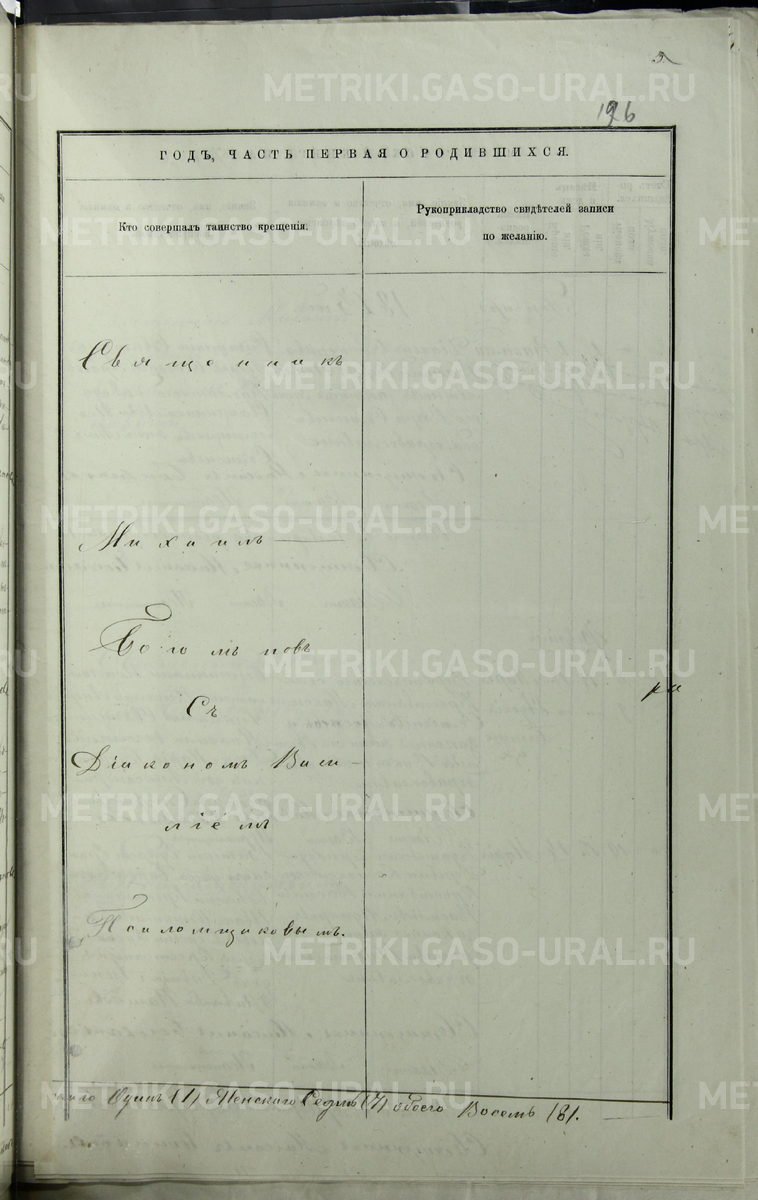 3
196
ГОДЪ, ЧАСТЬ ПЕРВАЯ О РОДИВШИХСЯ.
Кто совершалъ таинство крещенія.
Рукоприкладство свидѣтелей записи
по желанію.
Священникъ
Михаилъ
Съ
Діакономъ Васи-
ліемъ
Псаломщиковымъ.
Одинъ (1) Женскаго Седмь (7) обоего Восемь (8).
METRIKI.GASO-URAL.RU